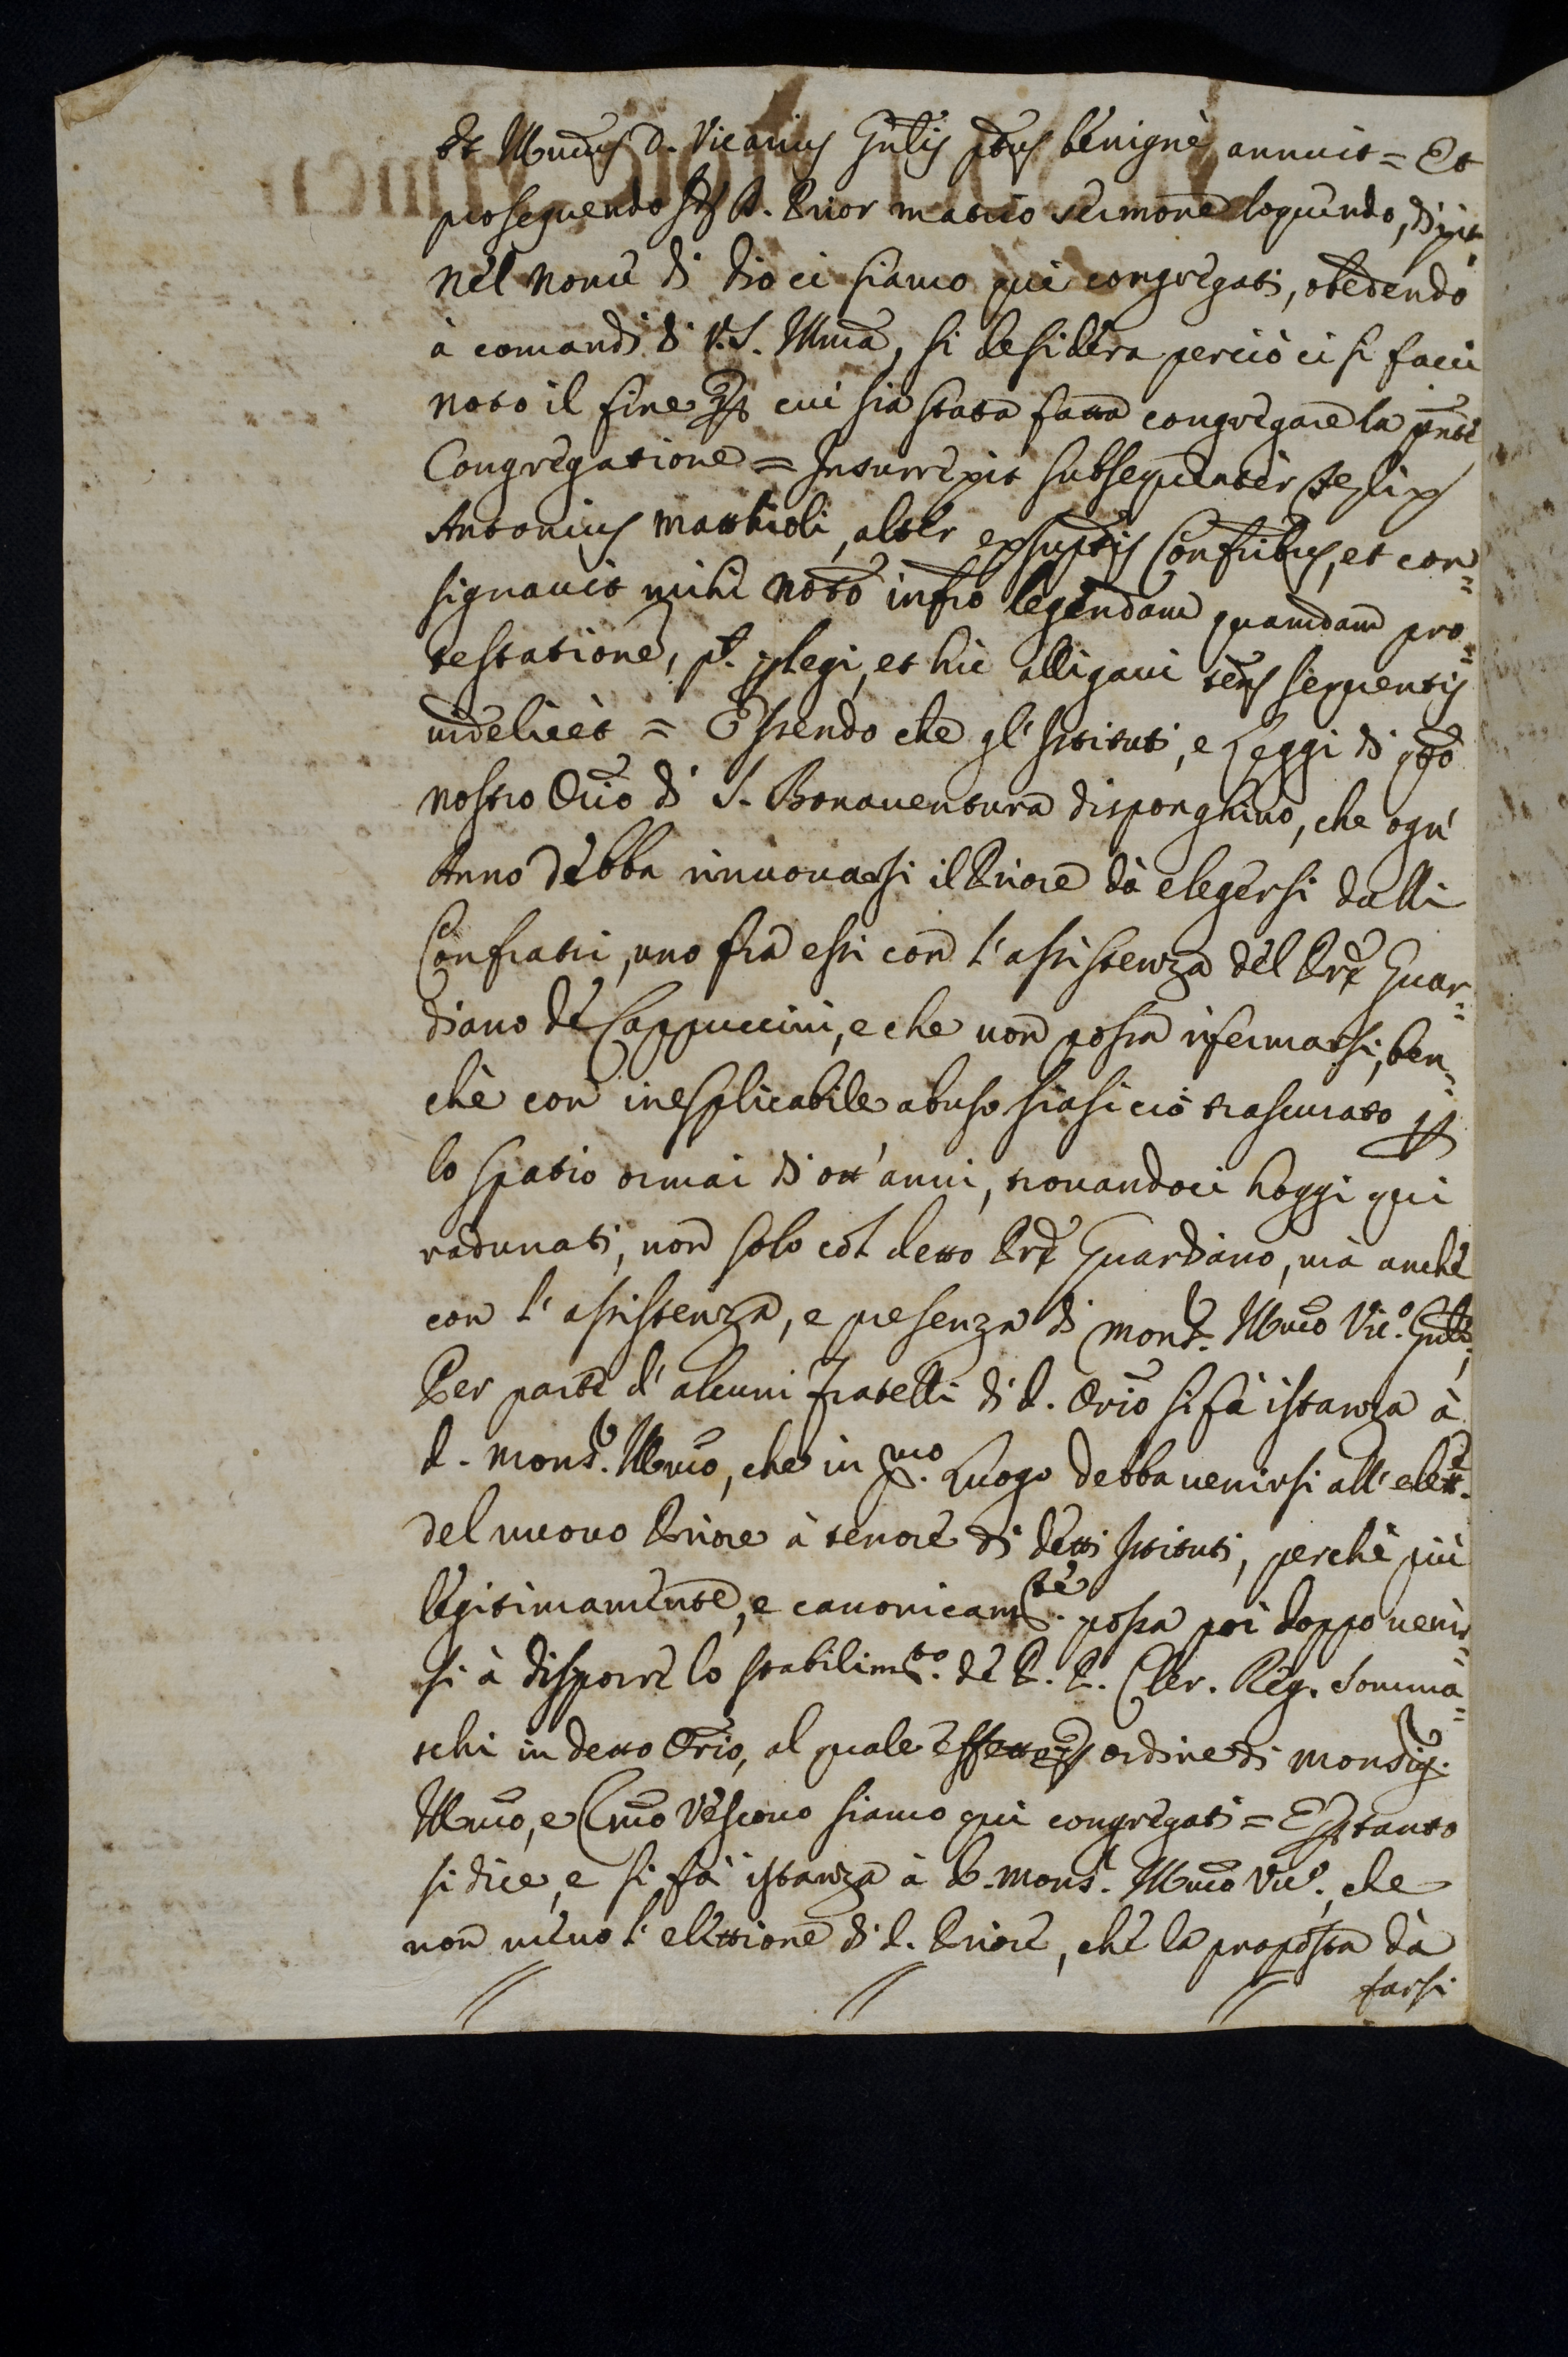 et Illmus D. Vicarius Gnlis ptus benigne annuit = Et
proseguendo ds D. Prior materno sermone loquendo, dixit
nel nome di Dio ci siamo qui congregati, obedendo
à comandi di V.S. Illma, si desidera perciò ci si facci
noto il fine p cui sia stata fatta congregare la pnte
Congregatione = Insurrexit subsequenter
Antonius Matthioli, alter ex suptis Confribus, et con=
signavit mihi Noto infro legendam quamdam pro=
testatione, pt. plegi, et hic alligavi tens sequentis
videlicet = Essendo che gl'Istituti, e Leggi di qto
nostro Orio di S. Bonaventura disponghino, che ogn'
Anno debba rinuovarsi il Priore dà elegersi dalli
Confratri, uno frà essi con l'assistenza del Pre Guar=
diano de Cappuccini, e che non possa rifermarsi, ben=
chè con inesplicabile abuso siasi ciò trascurato p
lo spatio ormai di ott'anni, trovandoci hoggi qui
radunati, non solo col detto Pre Guardiano, mà anche
con l'assistenza, e presenza di Monsr. Illmo Vic.o Gnle,
Per parte d'alcuni Fratelli di d. Orio si fà istanza à
d. Monsr. Illmo, che in pmo. Luogo debba venirsi all'elett.e
del nuovo Priore à tenore di detti Istituti, perchè più
legitimamente, e canonicamte. possa poi doppo venir=
si à disporre lo stabilimto. de P. P. Cler. Reg. Somma=
schi in detto Orio, al quale effetto p ordine di Monsig.r
Illmo, e Rmo Vescovo siamo qui congregati = E p tanto
si dice, e si fà istanza à d. Monsr. Illmo Vic.o, che
non meno l'elettione di d. Priore, che la proposta dà
farsi